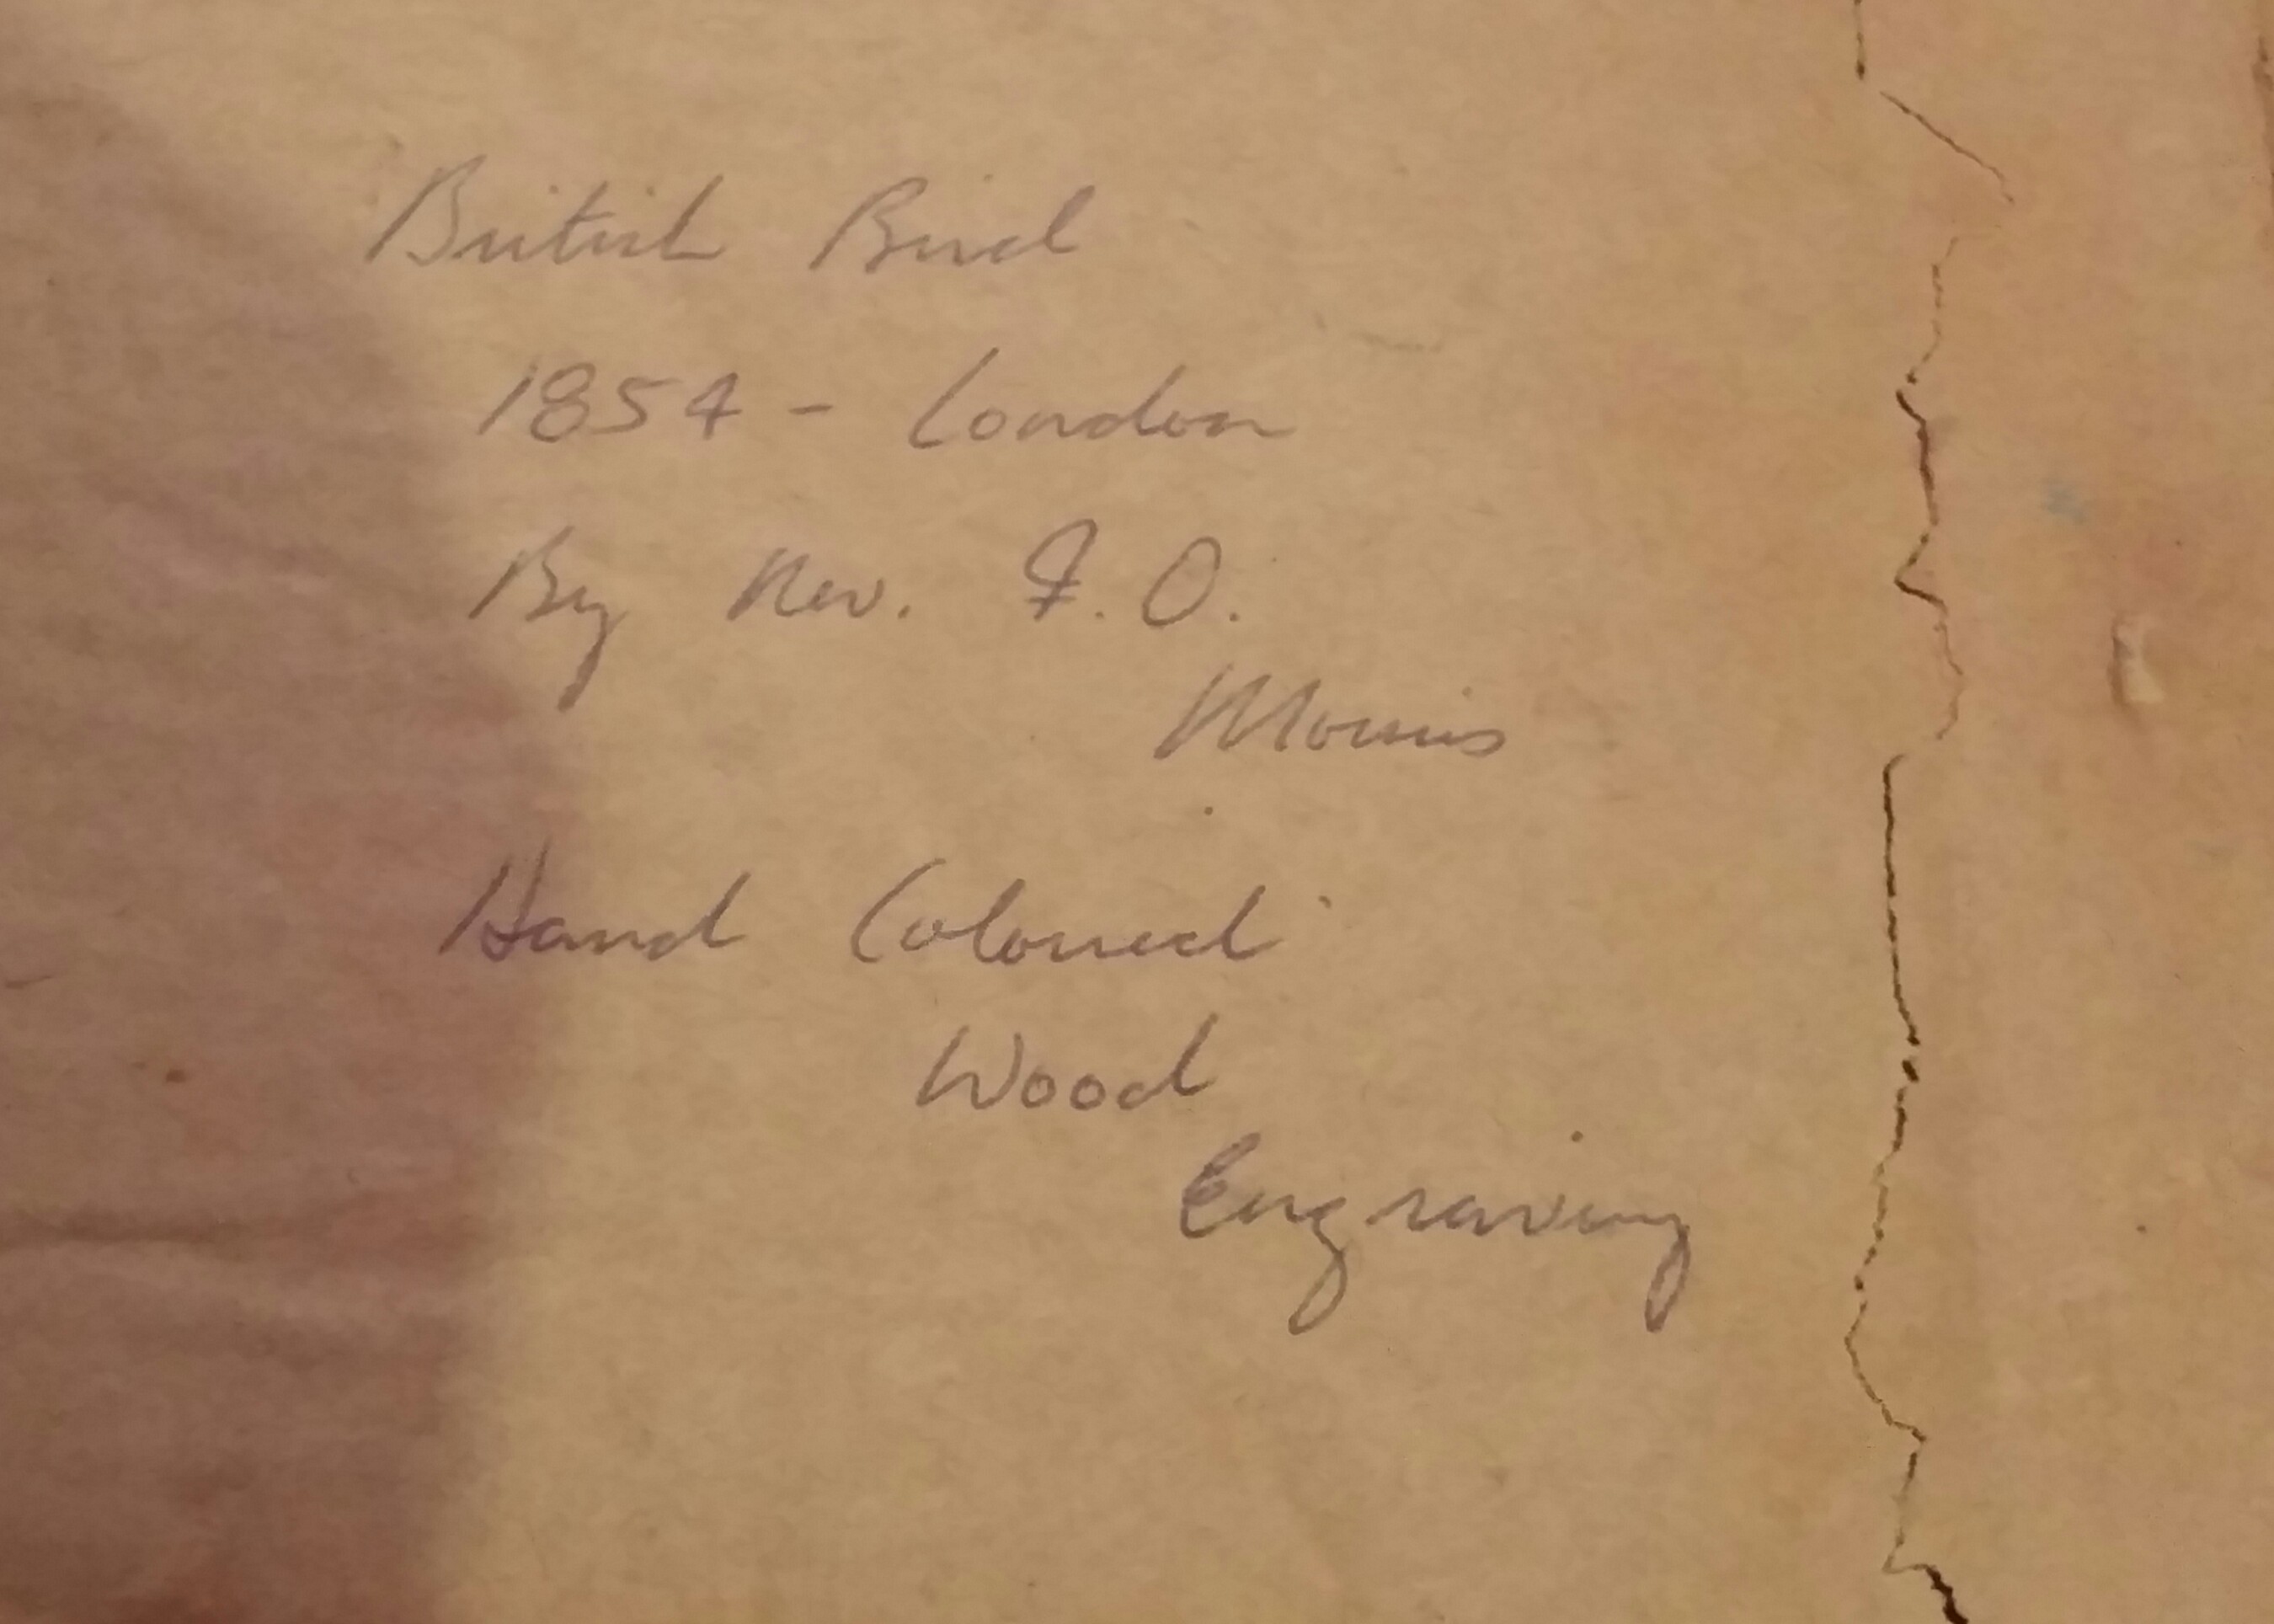 British Bird
1854 - London
By Rev. F. O.
Morris
Hand Colored
Wood
Engraving